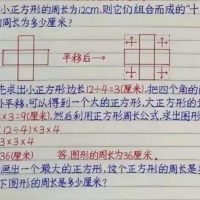 小正方形的周长为12cm,则它们组合而成的"十
的周长为多少厘米?
平移后→
先求出小正方形边长12÷4=3(厘米),把四个角的
外平移,可以得到一个大的正方形,大正方形的
×3=9(厘米),然后利用正方形周长公式,求出图形
(12÷4)×3×4
3×3×4
36(厘米) 答.图形的周长为36厘米。
画出一个最大的正方形,这个正方形的周长是
下图形的周长是多少厘米?